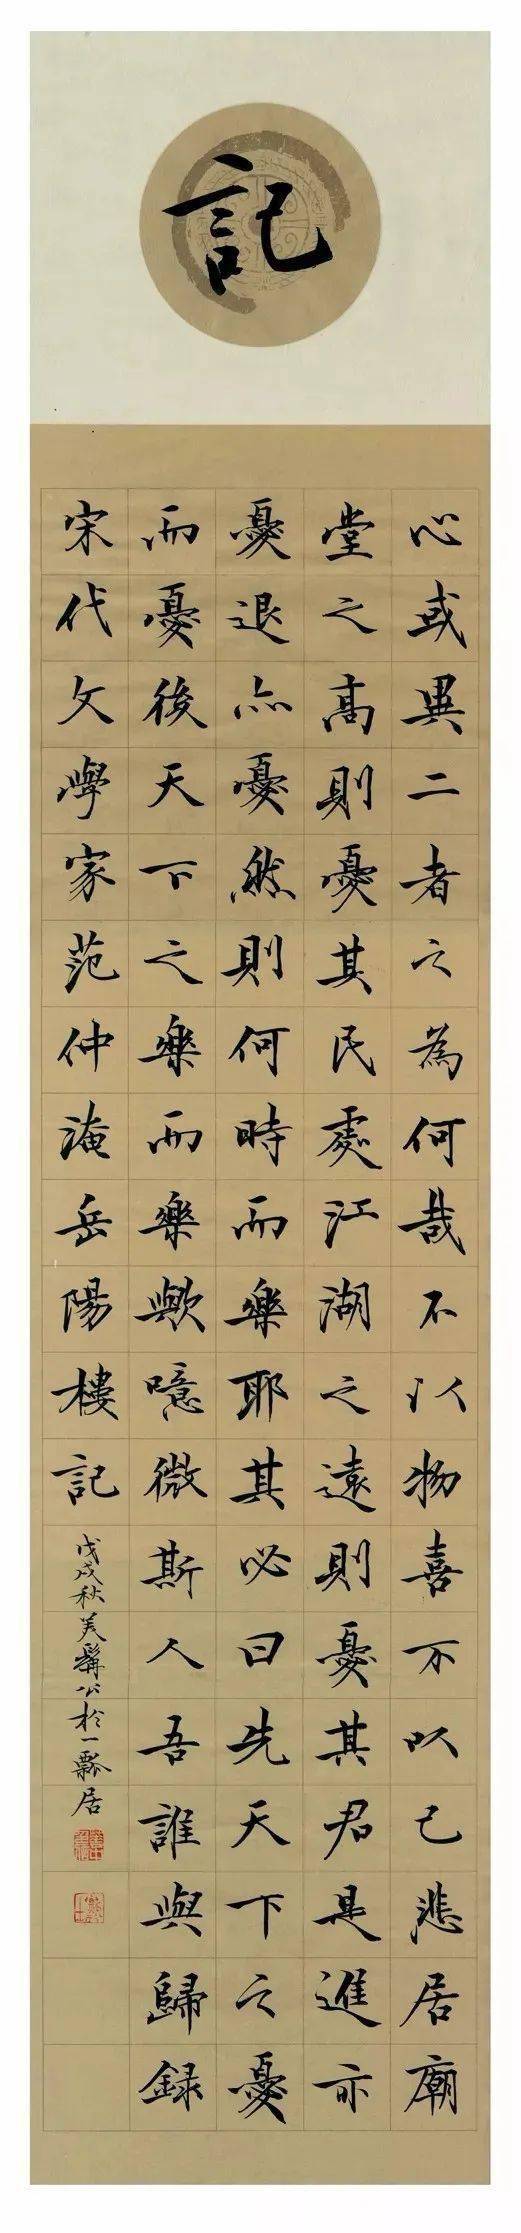 記
心或異二者之為何哉不以物喜不以己悲居廟
堂之高則憂其民處江湖之遠則憂其君是進亦
憂退亦憂然則何時而樂耶其必曰先天下之憂
而憂後天下之樂而樂歟噫微斯人吾誰與歸錄
宋代文學家范仲淹岳陽樓記
戊戌秋美髯公於一瓢居